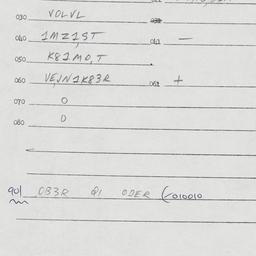 030 VOLVL
040 1MZ1,ST 041 —
050 K81M0,T
060 VE,N1K83R 061 +
070 O
080 O
901 OB3R Q1 ODER (010010